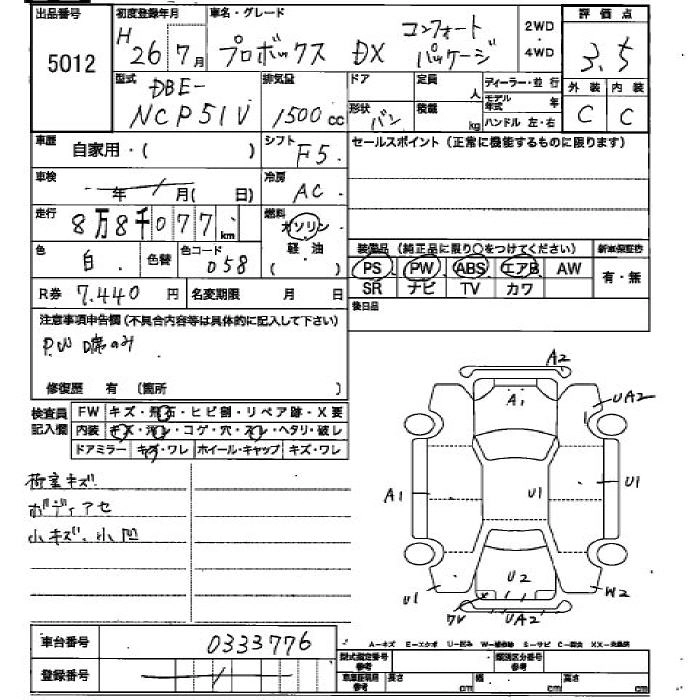 出品番号 初度登録年月 車名・グレード 評価点
5012 H 26年7月 プロボックス DX コンフォートパッケージ 2WD・4WD 3.5
型式 排気量 ドア 定員 人 ディーラー・並行 外装 内装
DBE-NCP51V 1500cc 形状 バン 積載 kg モデル年式 年 ハンドル 左・右 C C
車歴 自家用・( ) シフト F5 セールスポイント(正常に機能するものに限ります)
車検 年 月(日) 冷房 AC
走行 8万8千077km 燃料 ガソリン 軽油 ( )
色 白 色替 色コード 058 装備品(純正品に限り○をつけてください) 新車保証書
PS PW ABS エアB AW 有・無
R券 7.440円 名変期限 月 日 SR ナビ TV カワ
後日品
注意事項申告欄(不具合内容等は具体的に記入して下さい)
P.W D席のみ
修復歴 有 (箇所 )
検査員記入欄 FW キズ・飛石・ヒビ割・リペア跡・X要
内装 キズ・汚レ・コゲ・穴・スレ・ヘタリ・破レ
ドアミラー キズ・ワレ ホイール・キャップ キズ・ワレ
荷室キズ
ボディアセ
小キズ、小凹
A2
A1
UA2
A1
U1
U1
U2
U1
W2
UA2
車台番号 0333776
A-キズ E-エクボ U-凹み S-サビ
登録番号
型式指定番号 参考 類別区分番号 参考
参考 長さ cm 幅 cm 高さ cm